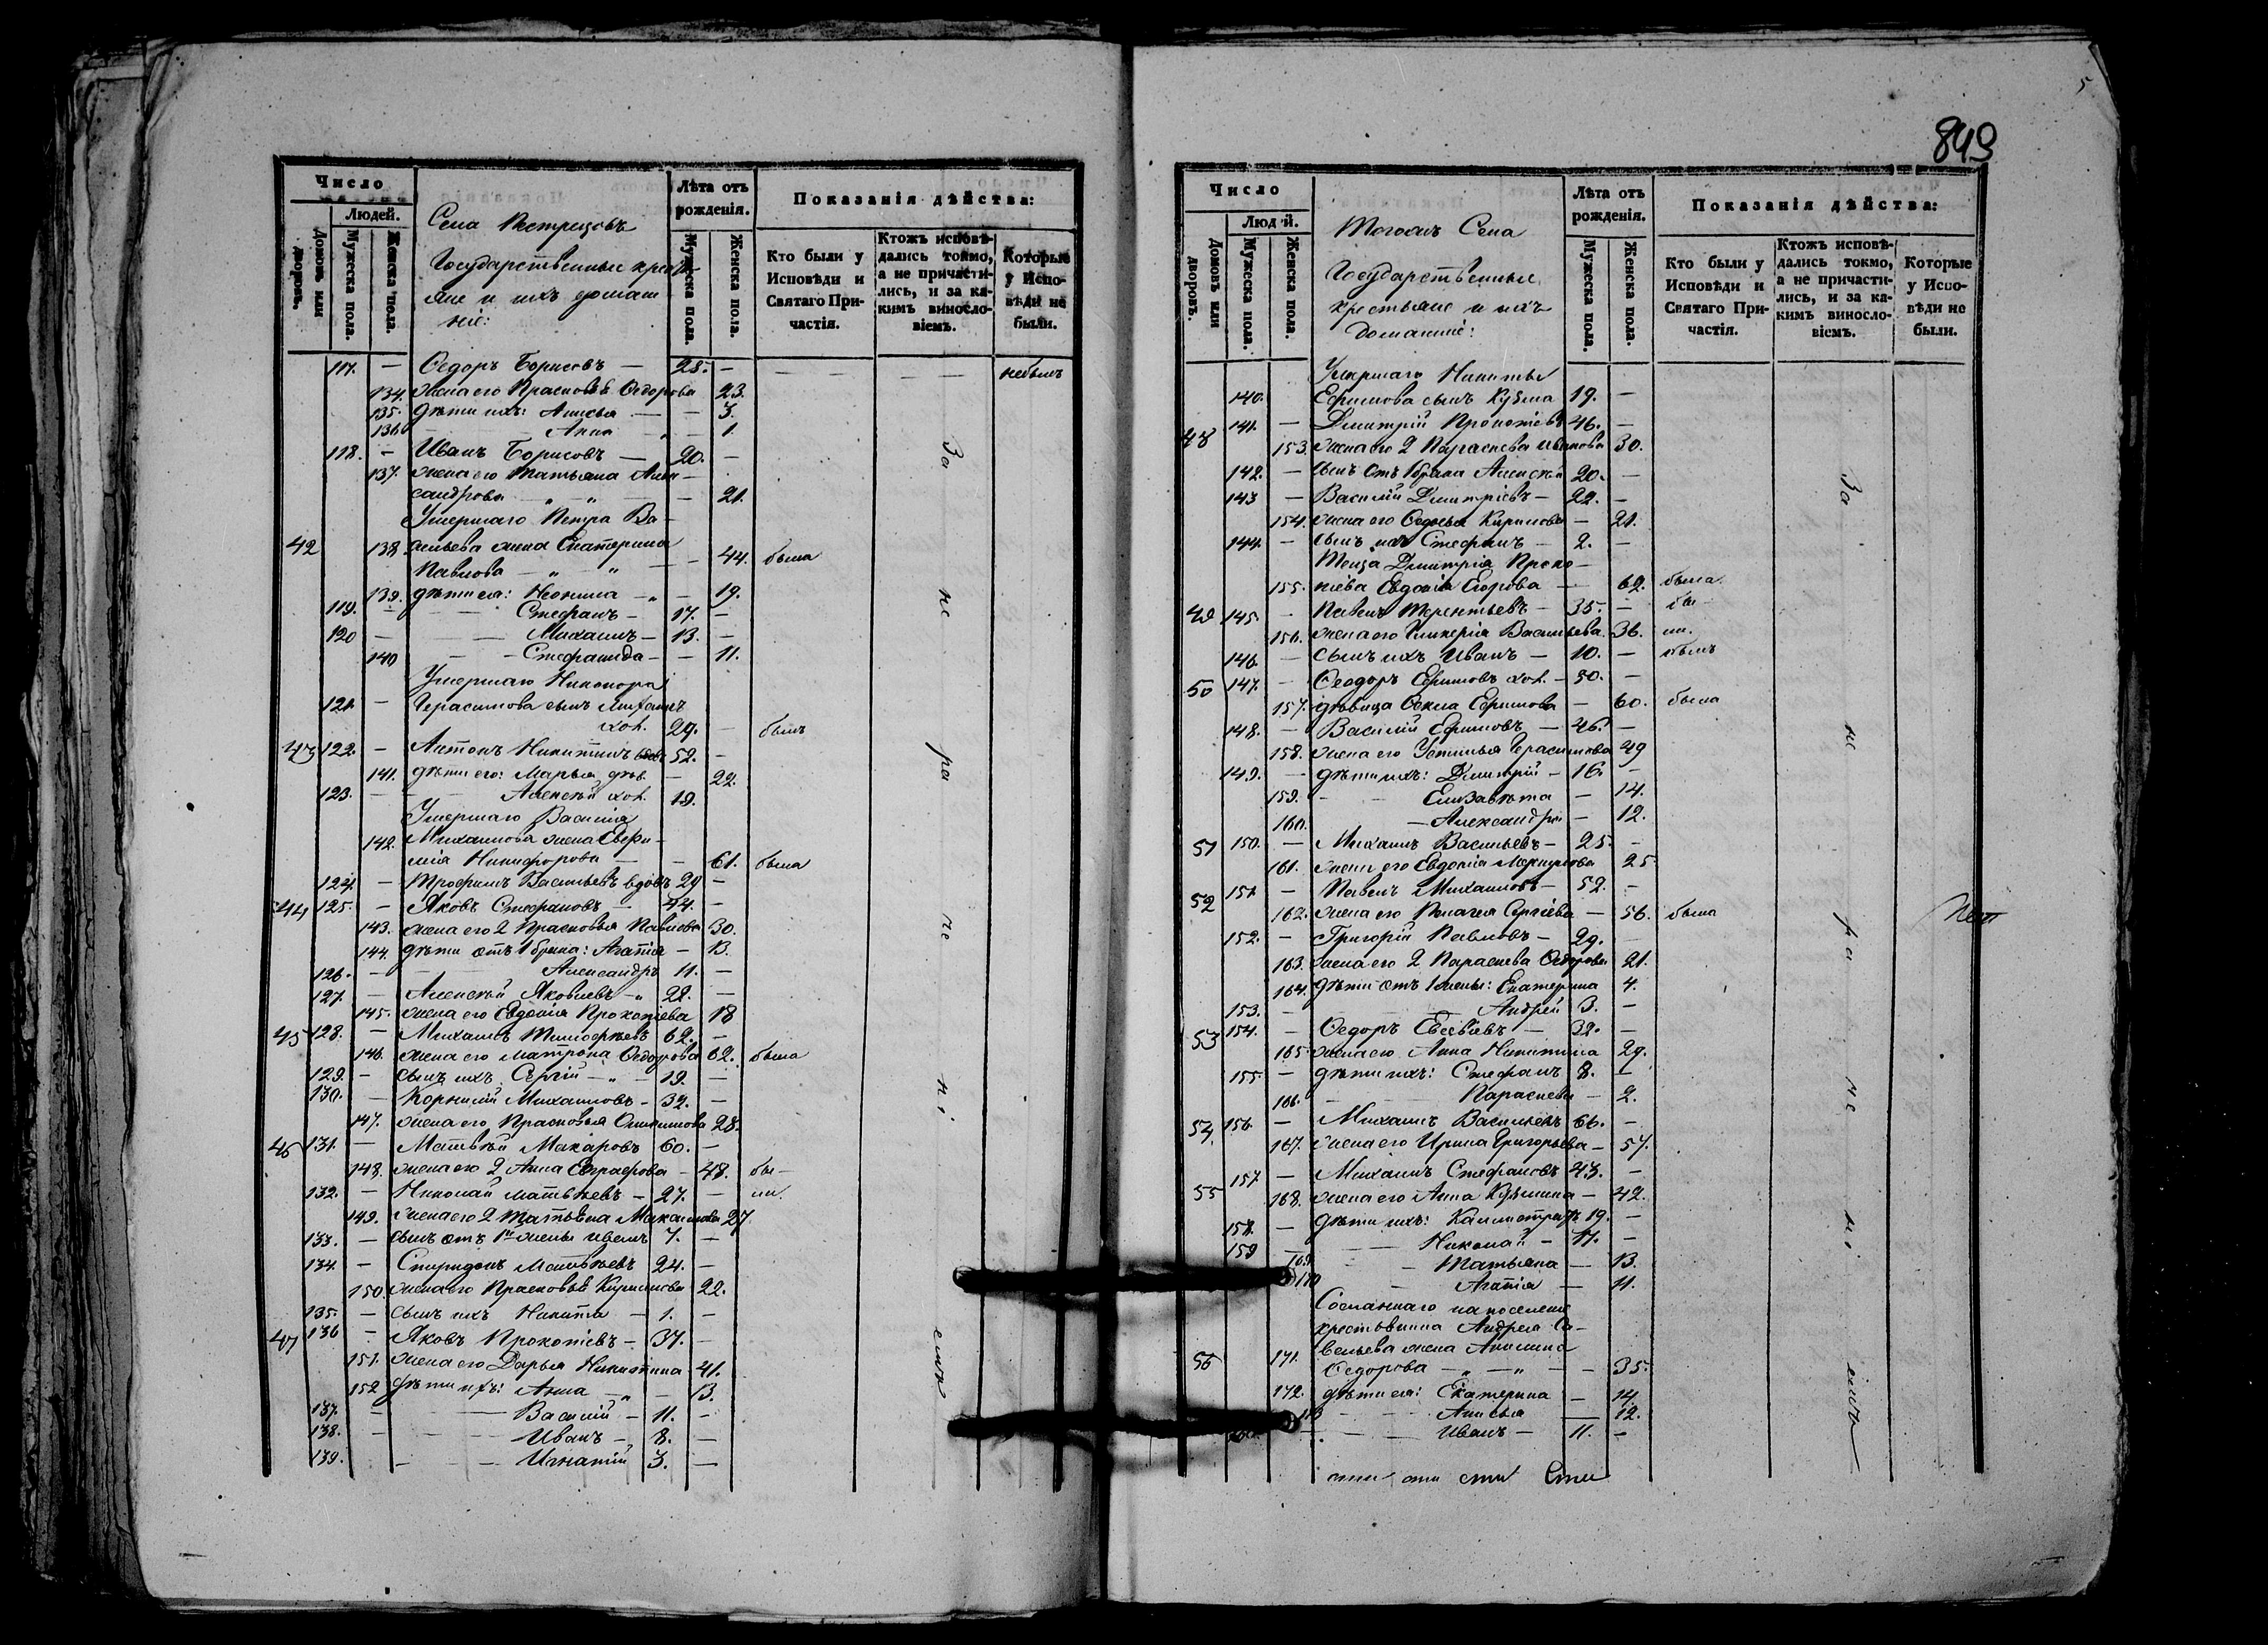 Число
Людей.
Домовъ или дворовъ.
Мужеска пола.
Женска пола.
Села Пестрецовъ
Государственные кресть
яне и ихъ домаш
ніе:
Лѣта отъ рожденія.
Мужеска пола.
Женска пола.
Показанія дѣйства:
Кто были у Исповѣди и Святаго Причастія.
Ктожъ исповѣдались токмо, а не причастились, и за какимъ винословіемъ.
Которые у Исповѣди не были.
117. — Ѳедоръ Борисовъ — 28. — небылъ
134. жена его Прасковья Ѳедорова 23.
135. дѣти ихъ: Анисья — — 3.
136. Анна — 1.
118. — Иванъ Борисовъ — 20. —
137. жена его Татьяна Алек-
сандрова — „ — „ — 21.
Умершаго Петра Ва-
42 138 сильева жена Екатерина
Павлова — „ „ — 44. была
139. дѣти ея: Неонила — „ — 19.
119. — Стефанъ — 17. —
120 — Михаилъ — 13. —
140 — Стефанида — — 11.
Умершаго Никонора
121. — Герасимова сынъ Михаилъ
хол. 29. — былъ
43 122. — Антонъ Никитинъ вдов. 52. —
141. дѣти его: Марья дѣв. — 22.
123. — Алексѣй хол. 19.
Умершаго Василія
142. Михаилова жена Евфи-
мія Никифорова — — 61. была
124. — Трофимъ Васильевъ вдовъ 29 —
44 125. — Яковъ Стефановъ — 44. —
143. жена его 2 Прасковья Павлова 30.
144. дѣти отъ 1 брака: Агапія — 13.
126. — Александръ 11. —
127. — Алексѣй Яковлевъ — „ 22. —
145. жена его Евдокія Прокопіева 18
45 128. — Михаилъ Тимофѣевъ 62. —
146. жена его Матрона Ѳедорова 62. была
129. — сынъ ихъ Сергій — „ — 19. —
130. — Корнилій Михаиловъ — 32. —
147. жена его Прасковья 28.
46 131. — Матвѣй Макаровъ 60. —
148. жена его 2 Анна Евграфова — 48. бы-
132. — Николай Матвѣевъ — 27. — ли.
149. жена его 2 Татьяна 27
133. — сынъ отъ 1й жены Иванъ 7. —
134. — Спиридонъ Матвѣевъ 24. —
150. жена его Прасковья Кирилова 22.
135. — сынъ ихъ Никита — 1. —
47 136 — Яковъ Прокопіевъ — 37. —
151. жена его Дарья Никитина 41.
152 дѣти ихъ: Анна — „ — 13.
137. — Василій — 11. —
138. — Иванъ — 8. —
139. — Игнатій 3. —
За не ра де ні емъ
849
5
Число
Людей.
Домовъ или дворовъ.
Мужеска пола.
Женска пола.
Тогожъ Села
Государственные
крестьяне и ихъ
домашніе:
Лѣта отъ рожденія.
Мужеска пола.
Женска пола.
Показанія дѣйства:
Кто были у Исповѣди и Святаго Причастія.
Ктожъ исповѣдались токмо, а не причастились, и за какимъ винословіемъ.
Которые у Исповѣди не были.
Умершаго Никиты
140. Ефимова сынъ Кузма 19. —
48 141. — Дмитрій Прокопіевъ 46. —
153. жена его 2 Параскева Иванова 30.
142. — сынъ отъ 1 брака Алексѣй 20. —
143 — Василій Дмитріевъ — 22. —
154. жена его Ѳедосья Кирилова — 21.
144. — сынъ ихъ Стефанъ — 2. —
Теща Дмитрія Проко-
155. піева Евдокія Егорова — 62. была
49 145. — Павелъ Терентьевъ — 35. — бы-
156. жена его Гликерія Васильева 36. ли.
146. — сынъ ихъ Иванъ — 10. — былъ
50 147. — Ѳеодоръ Ефимовъ хол. — 50. —
157. дѣвица Ѳекла Ефимова — 60. была
148. — Василій Ефимовъ — 46. —
158. жена его Устинья Герасимова 49
149. — дѣти ихъ: Дмитрій — 16. —
159. — Елизавета — 14.
160. — Александра — 12.
51 150. — Михаилъ Васильевъ — 25. —
161. жена его Евдокія Меркулова 25
52 151. — Павелъ Михаиловъ — 52. —
162. жена его Пелагея Сергіева — 56. была
152. — Григорій Павловъ — 29. —
163. жена его 2 Параскева Ѳедорова 21.
164. дѣти отъ 1 жены: Екатерина 4.
153. — Андрей 3. —
53 154. — Ѳедоръ Евсевіевъ — 32. —
165. жена его Анна Никитина 29.
155. — дѣти ихъ: Стефанъ 8. —
166. — Параскева — 2.
54. 156. — Михаилъ Васильевъ 66. —
167. жена его Ирина Григорьева — 57.
55 157 — Михаилъ Стефановъ 43. —
168. жена его Анна Кузмина — 42.
158. — дѣти ихъ: Каллистратъ 19. —
159 — Николай — 17. —
169 — Татьяна — 13.
170 — Агапія — 11.
Сосланнаго на поселеніе
крестьянина Андрея Са-
56 171. вельева жена Акилина
Ѳедорова — „ — „ — 35.
172. дѣти ея: Екатерина — 14
173 — Анисья — 12.
— Иванъ — 11. —
За не ра де ні емъ